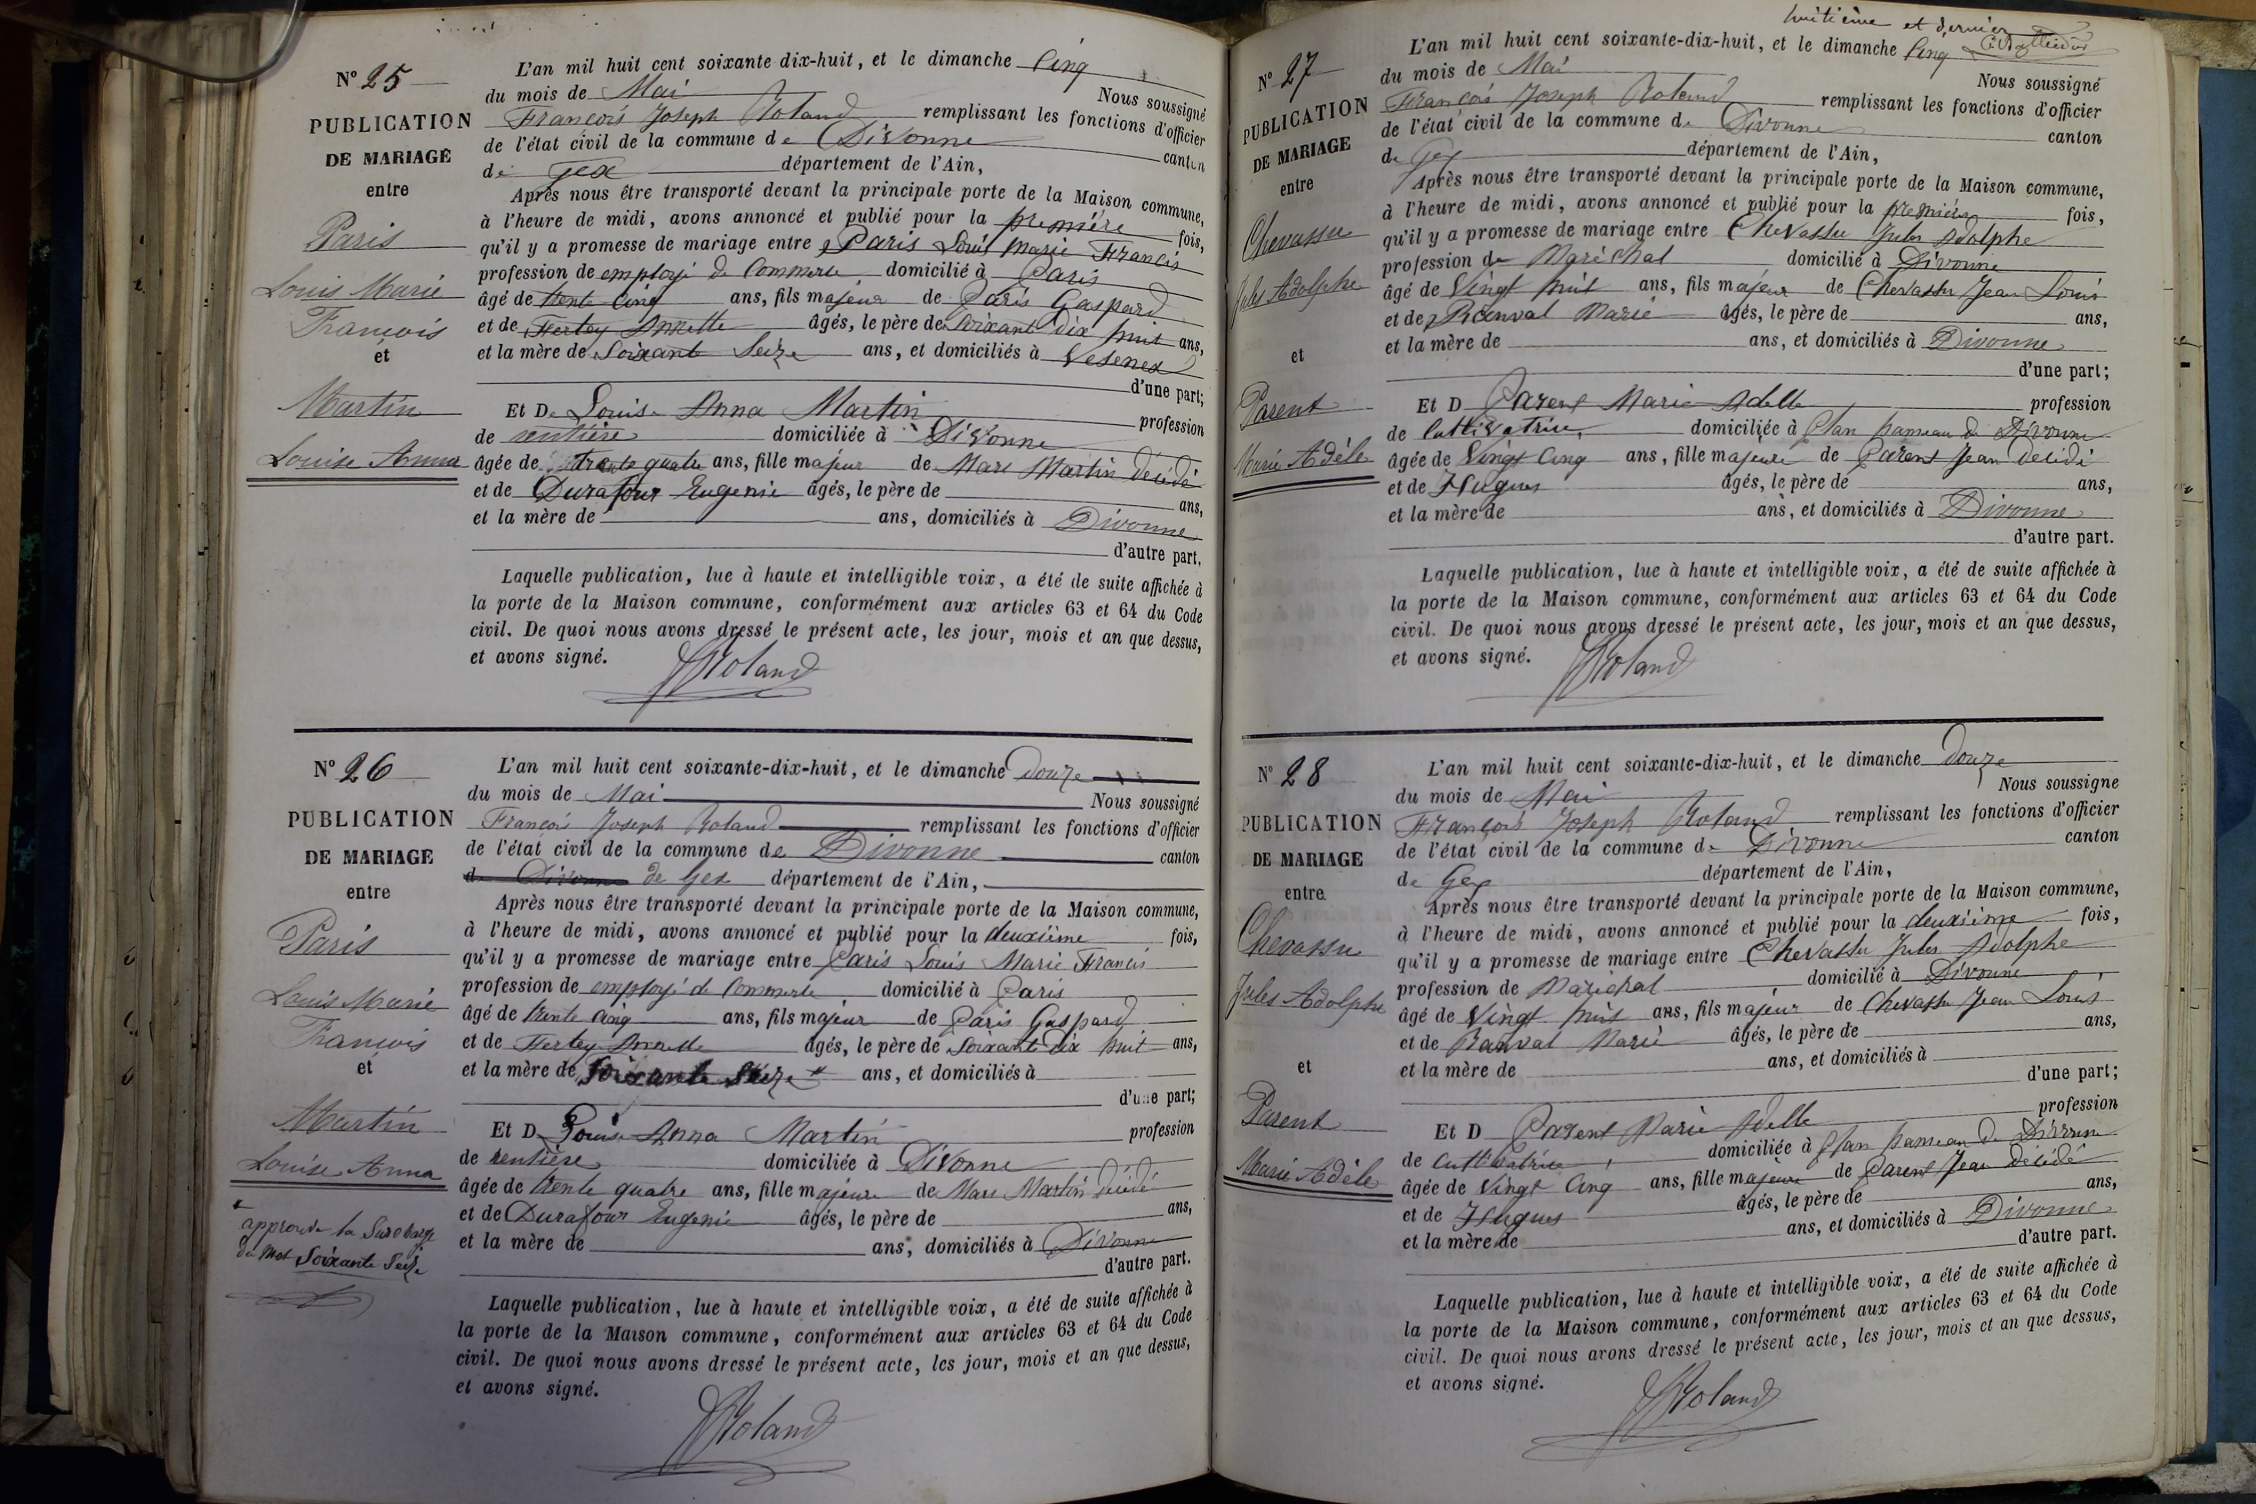 N° 25
PUBLICATION
DE MARIAGE
entre
Paris
Louis Marie
François
et
Martin
Louise Anna
L'an mil huit cent soixante dix-huit, et le dimanche Cinq
du mois de Mai Nous soussigné
François Joseph Roland remplissant les fonctions d'officier
de l'état civil de la commune de Divonne canton
de Gex département de l'Ain,
Après nous être transporté devant la principale porte de la Maison commune,
à l'heure de midi, avons annoncé et publié pour la première fois,
qu'il y a promesse de mariage entre Paris Louis Marie Francis
profession de employé de Commerce domicilié à Paris
âgé de trente cinq ans, fils majeur de Paris Gaspard
et de Fertey Annette âgés, le père de Soixant dix huit ans,
et la mère de Soixante Seize ans, et domiciliés à Vesenex
d'une part;
Et De Louise Anna Martin profession
de rentière domiciliée à Divonne
âgée de trente quatre ans, fille majeur de Marc Martin décédé
et de Durafour Eugenie âgés, le père de ans,
et la mère de ans, domiciliés à Divonne
d'autre part.
Laquelle publication, lue à haute et intelligible voix, a été de suite affichée à
la porte de la Maison commune, conformément aux articles 63 et 64 du Code
civil. De quoi nous avons dressé le présent acte, les jour, mois et an que dessus,
et avons signé.
Roland
N° 26
PUBLICATION
DE MARIAGE
entre
Paris
Louis Marie
François
et
Martin
Louise Anna
approuvé la Surcharge
du mot Soixante Seize
L'an mil huit cent soixante-dix-huit, et le dimanche douze
du mois de Mai Nous soussigné
François Joseph Roland remplissant les fonctions d'officier
de l'état civil de la commune de Divonne canton
de Divonne de Gex département de l'Ain,
Après nous être transporté devant la principale porte de la Maison commune,
à l'heure de midi, avons annoncé et publié pour la deuxième fois,
qu'il y a promesse de mariage entre Paris Louis Marie Francis
profession de employé de Commerce domicilié à Paris
âgé de trente cinq ans, fils majeur de Paris Gaspard
et de Fertey Annette âgés, le père de Soixante dix huit ans,
et la mère de Soixante Seize ans, et domiciliés à
d'une part;
Et D Louise Anna Martin profession
de rentière domiciliée à Divonne
âgée de trente quatre ans, fille majeure de Marc Martin décédé
et de Durafour Eugenie âgés, le père de ans,
et la mère de ans, domiciliés à Divonne
d'autre part.
Laquelle publication, lue à haute et intelligible voix, a été de suite affichée à
la porte de la Maison commune, conformément aux articles 63 et 64 du Code
civil. De quoi nous avons dressé le présent acte, les jour, mois et an que dessus,
et avons signé.
Roland
huitième et dernier
N° 27
PUBLICATION
DE MARIAGE
entre
Chevassu
Jules Adolphe
et
Parent
Marie Adèle
L'an mil huit cent soixante-dix-huit, et le dimanche Cinq
du mois de Mai Nous soussigné
François Joseph Roland remplissant les fonctions d'officier
de l'état civil de la commune de Divonne canton
de Gex département de l'Ain,
Après nous être transporté devant la principale porte de la Maison commune,
à l'heure de midi, avons annoncé et publié pour la première fois,
qu'il y a promesse de mariage entre Chevassu Jules Adolphe
profession de Maréchal domicilié à Divonne
âgé de Vingt huit ans, fils majeur de Chevassu Jean Louis
et de Ranval Marie âgés, le père de ans,
et la mère de ans, et domiciliés à Divonne
d'une part;
Et D Parent Marie Adelle profession
de Cultivatrice domiciliée à Plan hameau de Divonne
âgée de Vingt Cinq ans, fille majeure de Parent Jean décédé
et de Hugues âgés, le père de ans,
et la mère de ans, et domiciliés à Divonne
d'autre part.
Laquelle publication, lue à haute et intelligible voix, a été de suite affichée à
la porte de la Maison commune, conformément aux articles 63 et 64 du Code
civil. De quoi nous avons dressé le présent acte, les jour, mois et an que dessus,
et avons signé.
Roland
N° 28
PUBLICATION
DE MARIAGE
entre
Chevassu
Jules Adolphe
et
Parent
Marie Adèle
L'an mil huit cent soixante-dix-huit, et le dimanche douze
du mois de Mai Nous soussigné
François Joseph Roland remplissant les fonctions d'officier
de l'état civil de la commune de Divonne canton
de Gex département de l'Ain,
Après nous être transporté devant la principale porte de la Maison commune,
à l'heure de midi, avons annoncé et publié pour la deuxième fois,
qu'il y a promesse de mariage entre Chevassu Jules Adolphe
profession de Maréchal domicilié à Divonne
âgé de Vingt huit ans, fils majeur de Chevassu Jean Louis
et de Ranval Marie âgés, le père de ans,
et la mère de ans, et domiciliés à
d'une part;
Et D Parent Marie Adelle profession
de Cultivatrice domiciliée à Plan hameau de Divonne
âgée de Vingt Cinq ans, fille majeure de Parent Jean décédé
et de Hugues âgés, le père de ans,
et la mère de ans, et domiciliés à Divonne
d'autre part.
Laquelle publication, lue à haute et intelligible voix, a été de suite affichée à
la porte de la Maison commune, conformément aux articles 63 et 64 du Code
civil. De quoi nous avons dressé le présent acte, les jour, mois et an que dessus,
et avons signé.
Roland